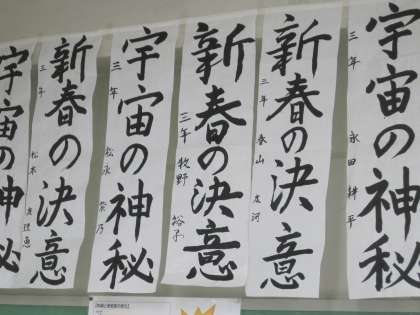 宇宙の神秘
三年 永田耕平
新春の決意
三年 春山
新春の決意
三年 牧野 裕子
宇宙の神秘
三年 松永 紫乃
新春の決意
三年 松本
宇宙の神秘